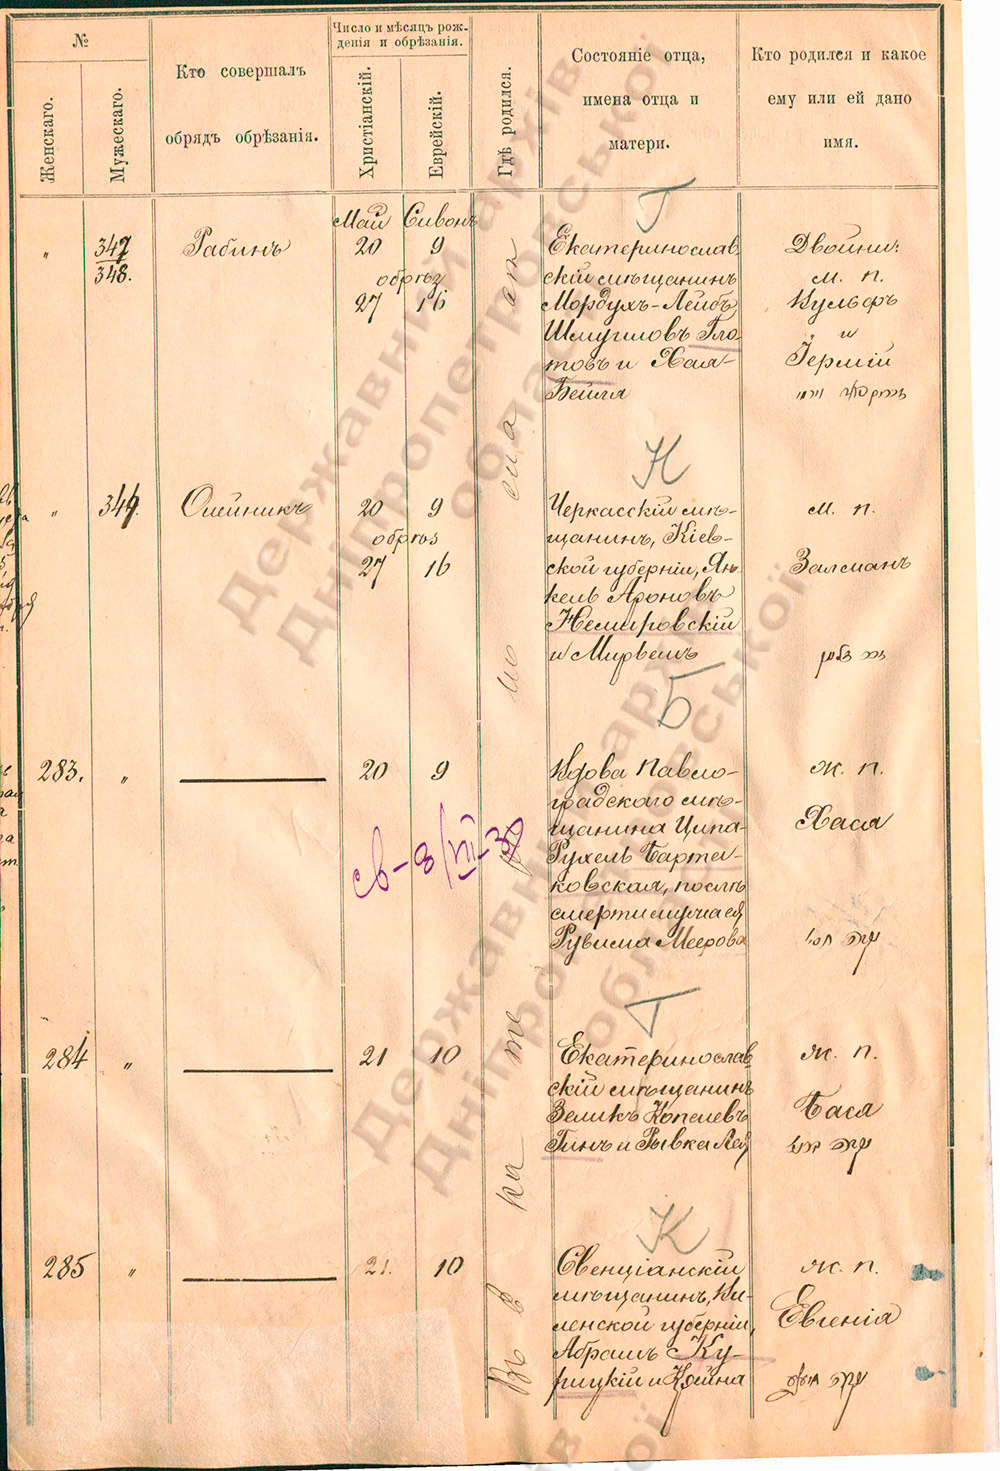 №
Женскаго.
Мужескаго.
Кто совершалъ
обрядъ обрѣзанія.
Число и мѣсяцъ рож-
денія и обрѣзанія.
Христіанскій.
Еврейскій.
Гдѣ родился.
Состояніе отца,
имена отца и
матери.
Кто родился и какое
ему или ей дано
имя.
Г
Май Сивонъ
" 347 Рабинъ 20 9
348.
обрѣз.
27 16
Екатеринослав-
скій мѣщанинъ
Мордухъ-Лейбъ
Шмуиловъ Гло-
товъ и Хая-
Бейля
Двойни:
м. п.
Кульфъ
и
Іермій
Н
" 349. Олейникъ 20 9
обрѣз
27 16
Черкасскій мѣ-
щанинъ, Кіев-
ской губерніи, Ян-
кель Ароновъ
Немировскій
и Мирьемъ
м. п.
Залманъ
Б
283. " 20 9
Вдова Павло-
градскаго мѣ-
щанина Ципа-
Рухель Барта-
ковская, послѣ
смерти мужа ея
Рувима Меерова
ж. п.
Хася
св-8/VII-39
Г
284 " 21 10
Екатеринослав-
скій мѣщанинъ
Зеликъ Копелевъ
Гинъ и Рывка Лея
ж. п.
Бася
К
285 " 21. 10
Свенціанскій
мѣщанинъ, Ви-
ленской губерніи,
Абрамъ Ку-
рицкій и Крейна
ж. п.
Евгенія
Державний архів
Дніпропетровської
області
Державний архів
Дніпропетровської
області